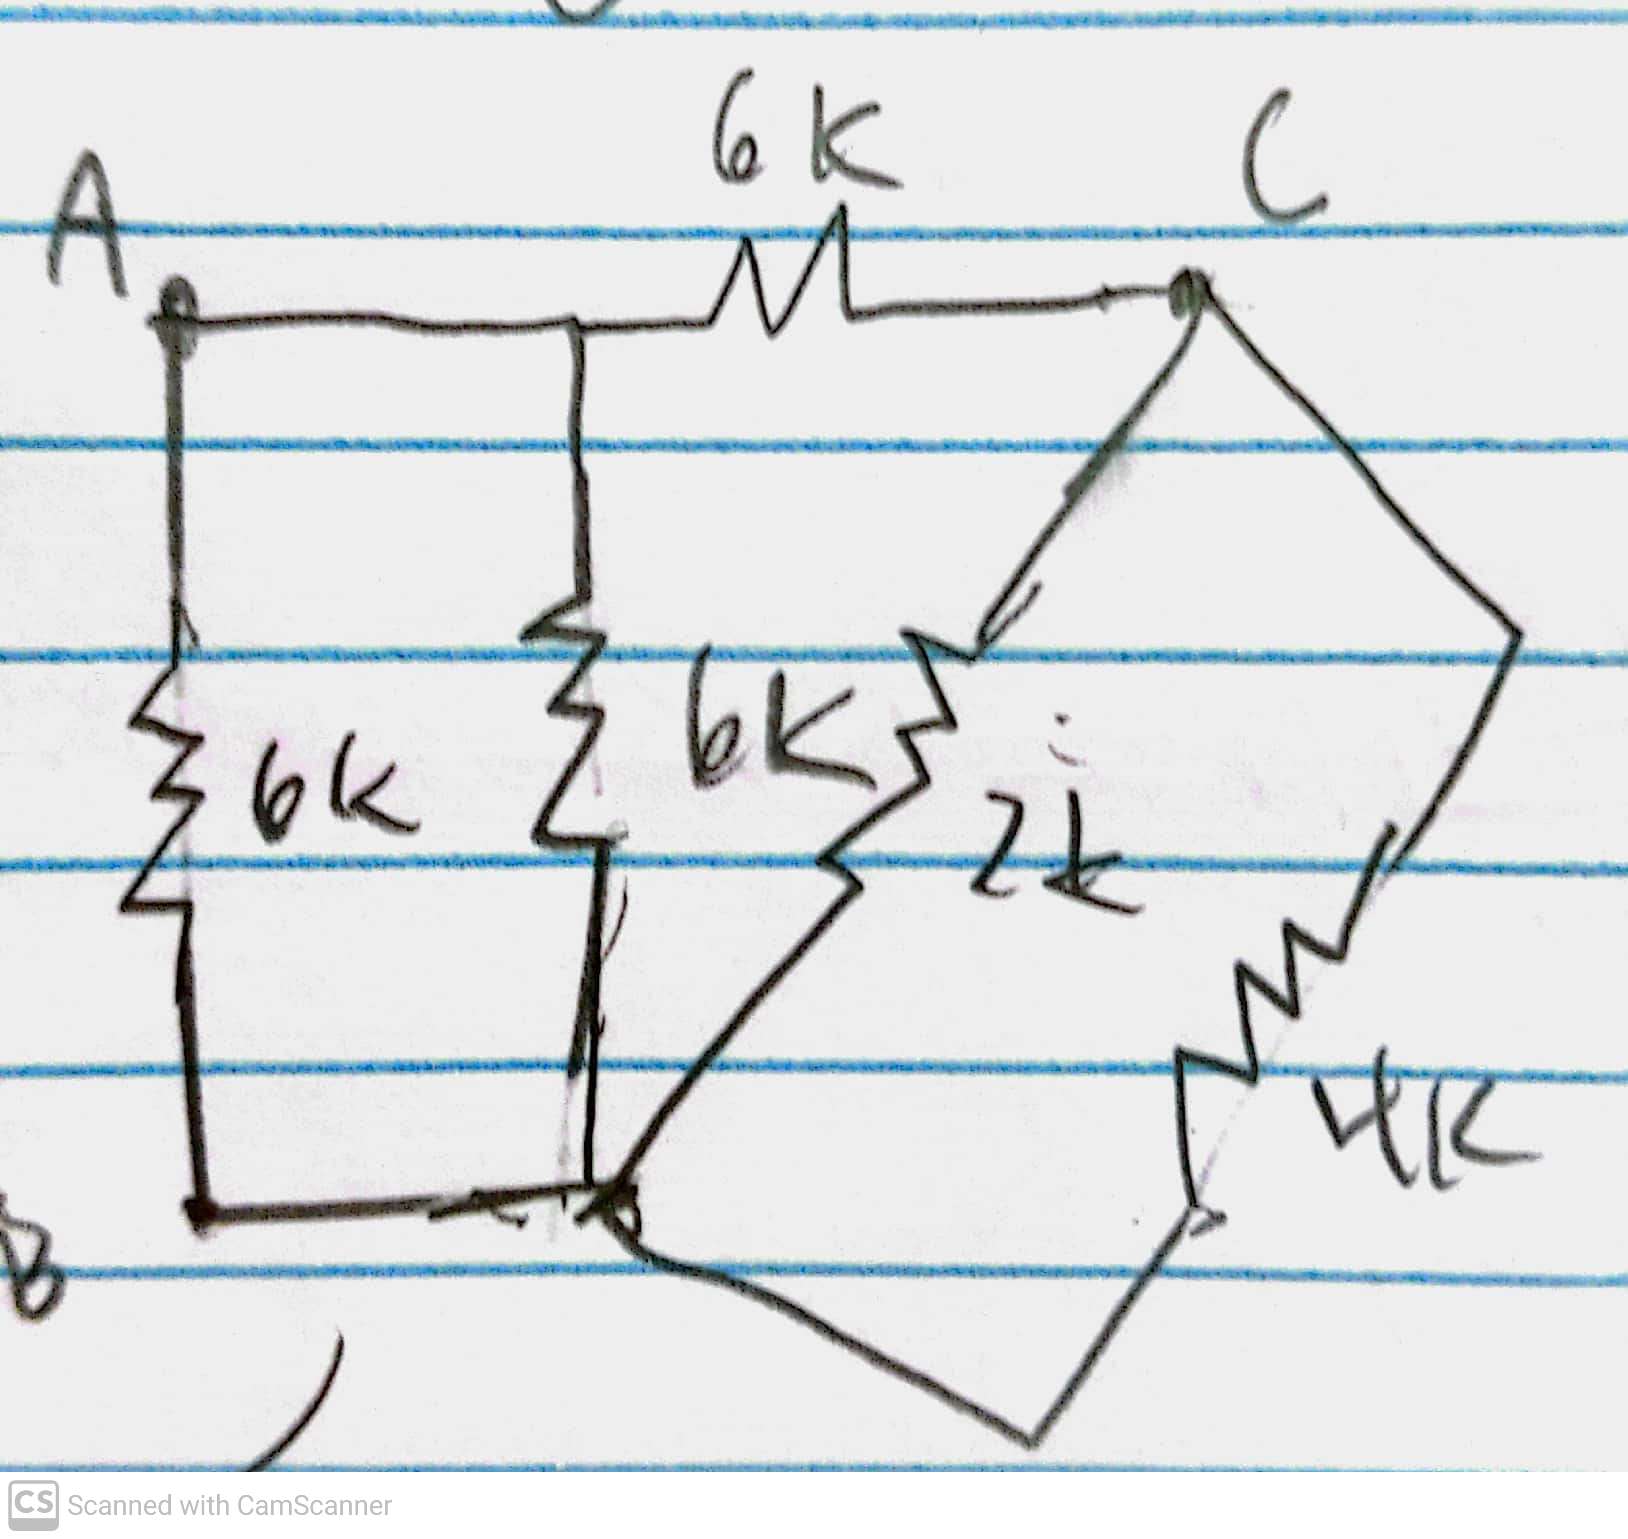 6K
C
A
6K
6K
2k
4K
B
CS Scanned with CamScanner